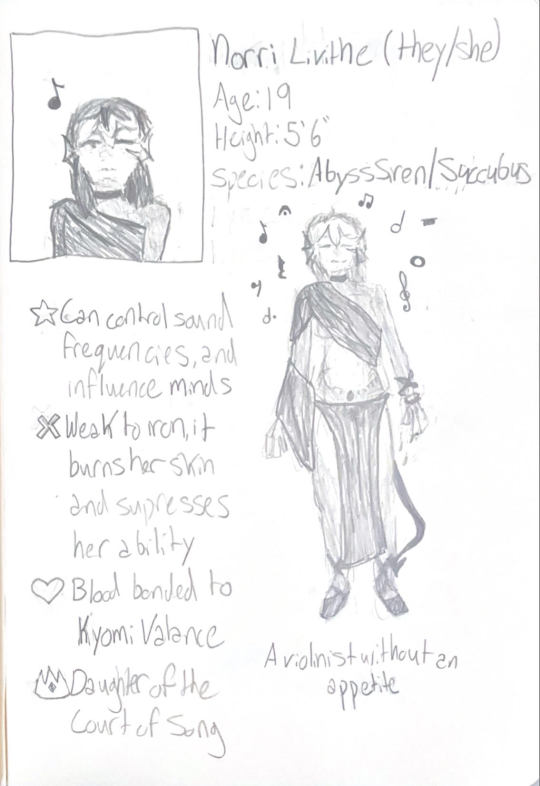 Norri Livithe (they/she)
Age: 19
Height: 5'6"
Species: AbyssSiren/Succubus
Can control sound
frequencies, and
influence minds
Weak to iron, it
burns her skin
and supresses
her ability
Blood bonded to
Kiyomi Valance
Daughter of the
Court of Song
A violinist without an
appetite